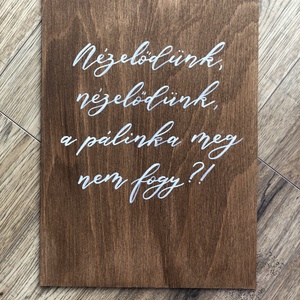 Nézelődünk,
nézelődünk,
a pálinka meg
nem fogy?!